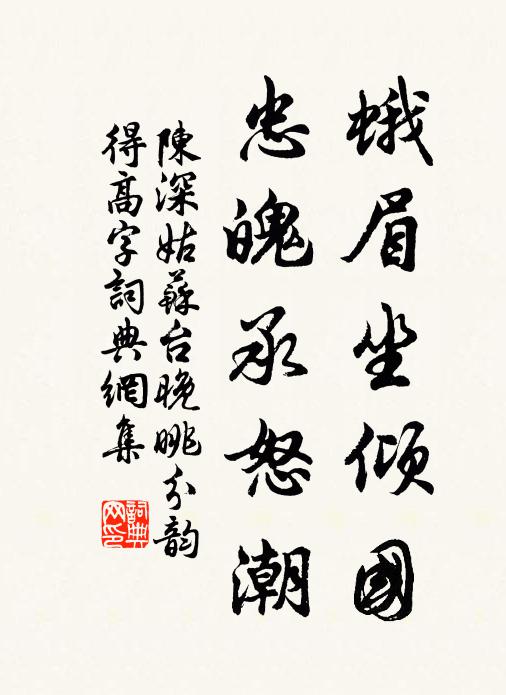 蛾眉坐傾國
忠魄承怒潮
陳深姑蘇台晚眺分韵
得高字詞典網集
詞典网印